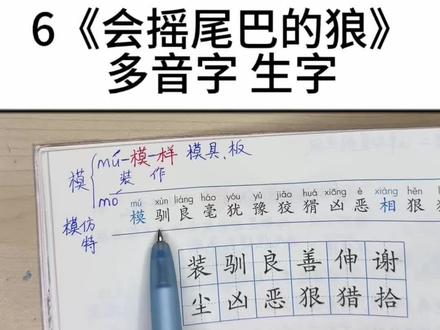 6《会摇尾巴的狼》
多音字 生字
模
mú 模样 模具、板
装 作
mó
模仿
特
mú xùn liáng háo yóu yù jiāo huá xiōng è xiàng hěn
模 驯 良 毫 犹 豫 狡 猾 凶 恶 相 狠
装 驯 良 善 伸 谢
尘 凶 恶 狠 猎 拾